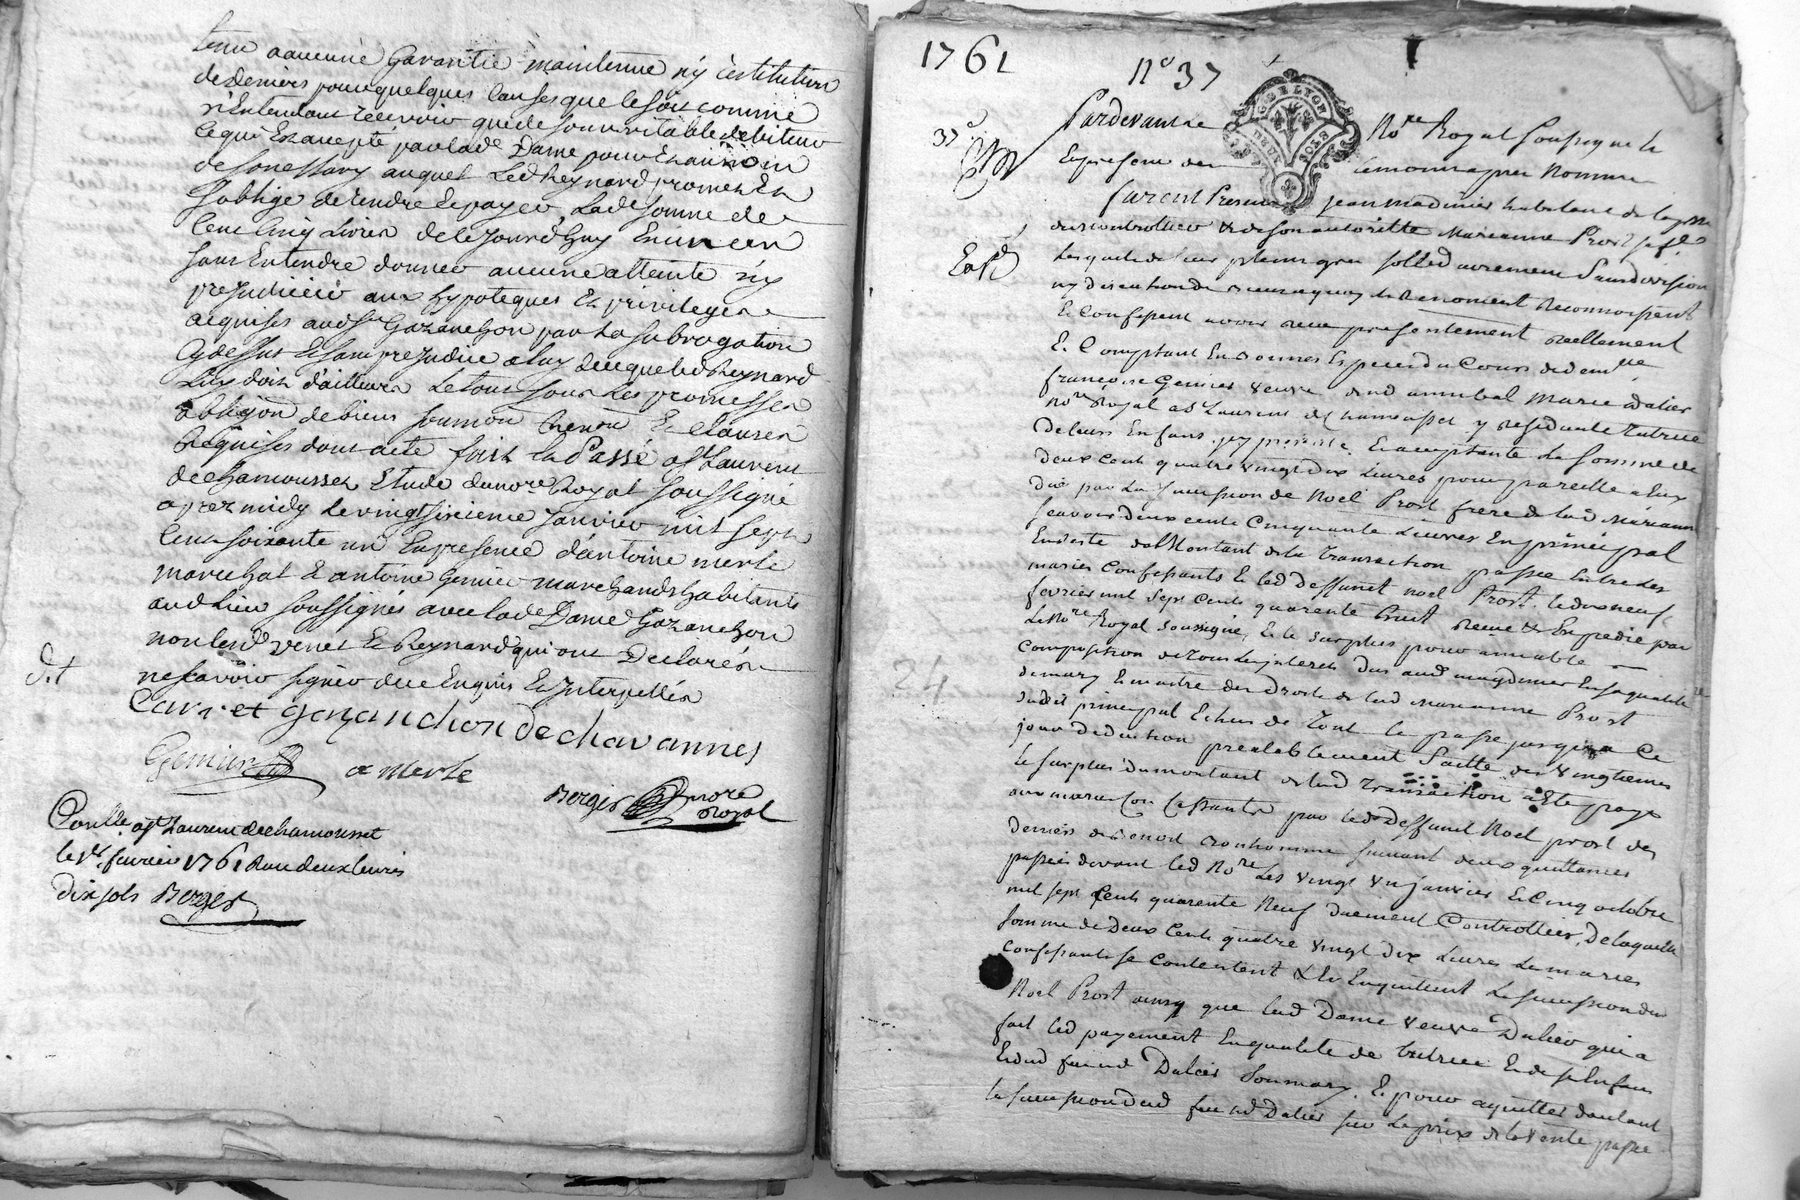 tenue a aucune Garantie maintenue ny restitution
de deniers pour quelques causes que le soit comme
n'Entendant recevoir que de son veritable debiteur
Ce qui Est accepté par lad^e Dame
auquel Led Reynard promet Et
s'oblige de rendre Et payer Lad^e somme de
Cent Cinq Livres de ce Jourd'huy En un an
sans Entendre donner aucune atteinte ny
prejudicier aux hypoteques Et privileges
acquises aud s^r Gazanchon par La subrogation
Cy dessus Et sans prejudice a luy de ce que led Reynard
Luy doit d'ailleurs Le tout sous Les promesses
obligon de biens soumon Renon Et clauses
Requises dont acte fait Et Passé a S^t Laurent
de chamousset Etude du no^re Royal soussigné
apres midy Le vingt sixieme Janvier mil sept
Cent soixante un En presence d'antoine merle
marechal Et antoine Genier marchands habitants
aud Lieu soussignés avec lad^e Dame Gazanchon
non lesd venet Et Reynard qui ont Declarés
ne scavoir signer de ce Enquis Et Interpellés
Cariet gazanchon de chavannes
Genier
a merle
Berger no^re Royal
d.t
Con^lle a S^t Laurent de chamousset
le 1^er fevrier 1761 Reçu deux livres
dix sols Berger
1761
n° 37
37
GEN. DE LYON
DEUX SOLS
Pardevant Le No^re Royal soussigné Et
En presence des temoins apres Nommés
furent Presents Jean madinier habitant de
de son autoritté Mariane Prost sa f^e
Exp^d
Lesquels de leur plein gré solidairement sans division
ny discution a quoy ils Renoncent Reconnoissent
Et Confessent avoir receu presentement reellement
Et Comptant En bonnes Especes du Cours de dem^lle
francoise Genier veuve de s^r annibal Marie dalier
No^re Royal a S^t Laurent de Chamousset y residente tutrice
de leurs Enfans icy presente Et acceptante La somme de
deux Cent quatre vingt dix Livres pour pareille a Eux
due par La succession de Noël Prost frere de lad Mariane
scavoir deux cents Cinquante Livres En principal
En reste du Montant de la transaction passée Entre Les
maries Confessants Et led deffunt noel Prost, le dix neuf
fevrier mil sept Cents quarente huit Receue & Expediée par
Le No^re Royal soussigné, Et le surplus pour amiable
Composition de tous Les Interets dus aud madinier En sa qualité
de mary Et maitre des Droits de lad Mariane Prost
dudit principal Echus de tout le passé jusqu'a Ce
jour deduction prealablement faitte des vingtiemes
Le surplus du montant de lad transaction a Eté payé
aux maries Confessants par led deffunt Noel prost des
deniers de Benoit Bonhomme suivant deux quittances
passées devant led No^re Les vingt un janvier Et Cinq octobre
mil sept Cents quarente Neuf duement Controllées, De laquelle
somme de Deux Cents quatre vingt dix Livres Les maries
Confessants se Contentent Et En quittent La succession dud
Noel Prost ainsy que lad Dame veuve Dalier qui a
fait led payement En qualité de tutrice de ses Enfans
Et dud feu s^r Dalier son mary, Et pour aquitter d'autant
la succession dud feu s^r Dalier sur Le prix de la vente passée
24